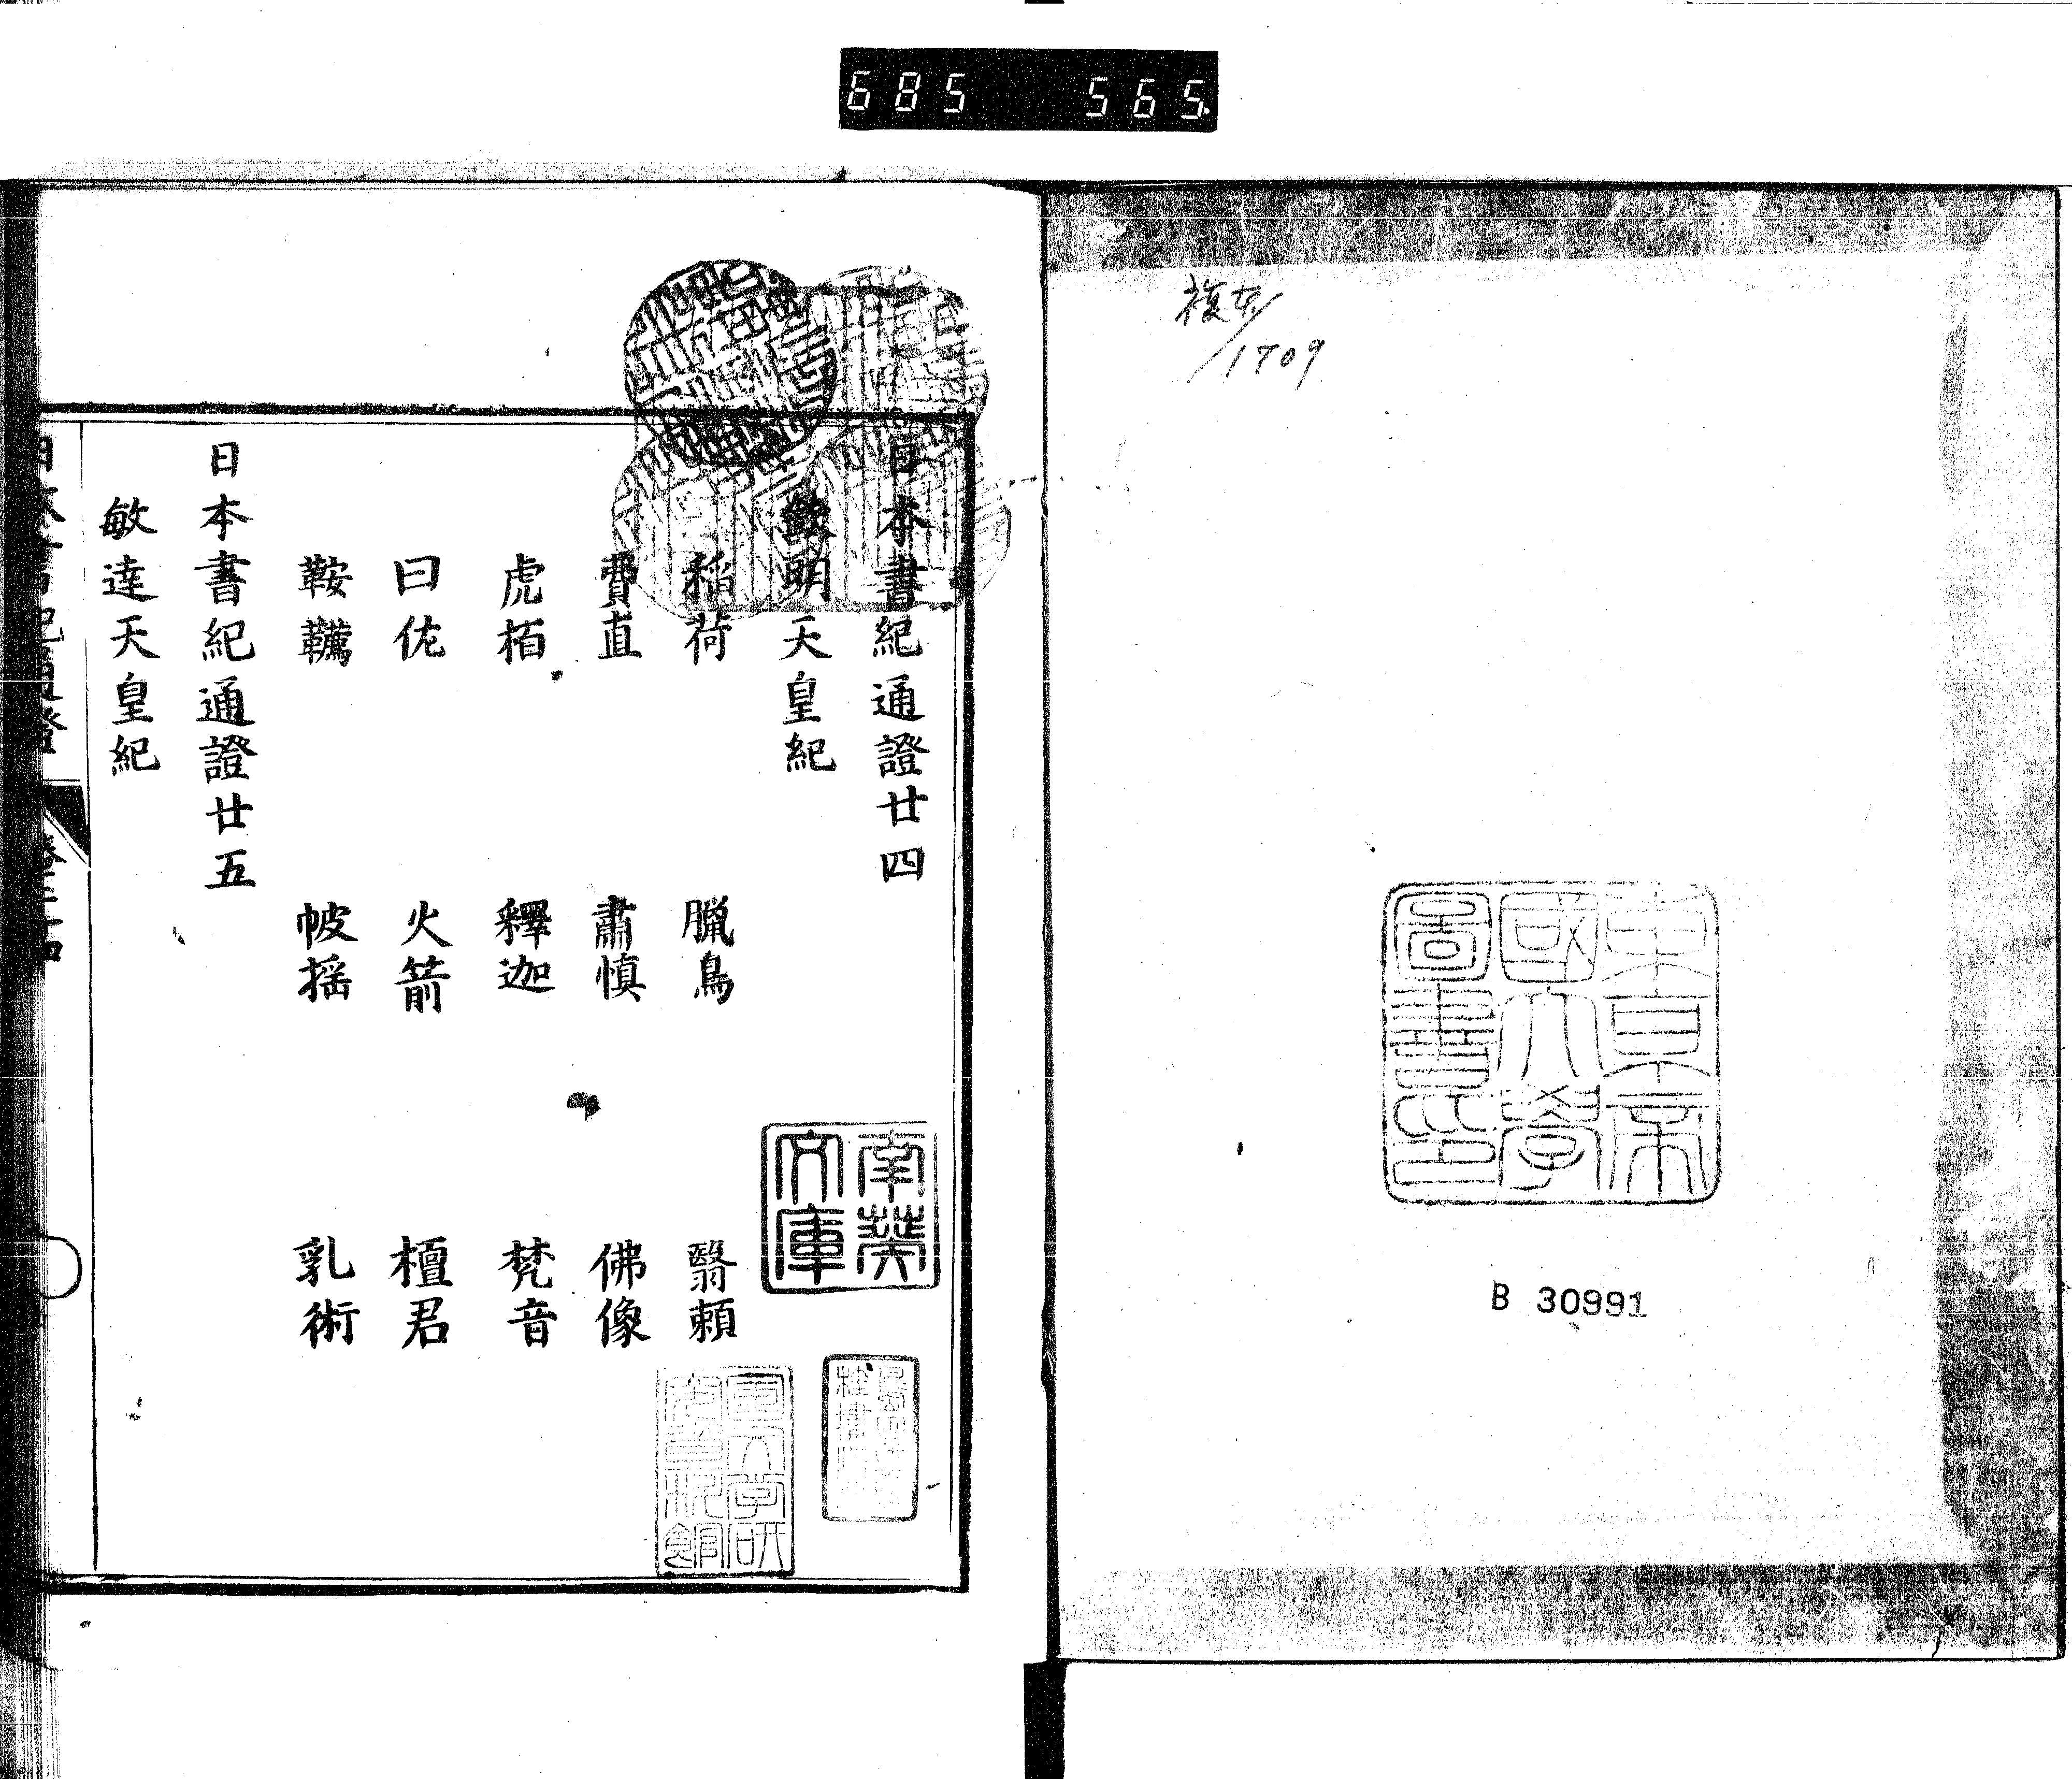 685 565
複本/1709
東京帝
國大學
圖書印
B 30991
日本書紀通證廿四
欽明天皇紀
稲荷 臘鳥 翳頼
費直 肅慎 佛像
虎栢 釋迦 梵音
曰佐 火箭 檀君
鞍韉 帔摇 乳術
日本書紀通證廿五
敏達天皇紀
南葵
文庫